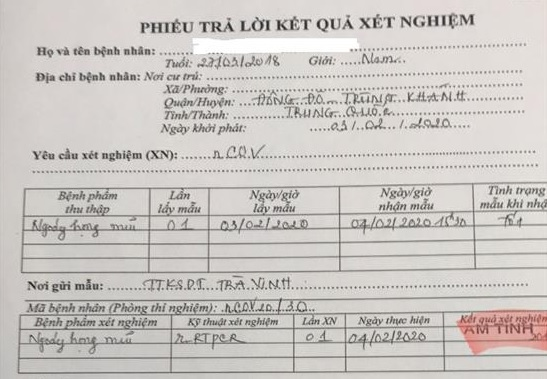 PHIẾU TRẢ LỜI KẾT QUẢ XÉT NGHIỆM
Họ và tên bệnh nhân:
Tuổi: 27/03/2018 Giới: Nam
Địa chỉ bệnh nhân: Nơi cư trú:
Xã/Phường:
Quận/Huyện: ĐÔNG ĐÔ TRÙNG KHÁNH
Tỉnh/Thành: TRUNG QUỐC
Ngày khởi phát: 03/02/2020
Yêu cầu xét nghiệm (XN): nCOV
Bệnh phẩm thu thập Lần lấy mẫu Ngày/giờ lấy mẫu Ngày/giờ nhận mẫu Tình trạng mẫu khi nhậ
Ngoáy họng mũi 01 03/02/2020 04/02/2020 15h30 Tốt
Nơi gửi mẫu: TTKSDT TRÀ VINH
Mã bệnh nhân (Phòng thí nghiệm): nCOV20/30
Bệnh phẩm xét nghiệm Kỹ thuật xét nghiệm Lần XN Ngày thực hiện Kết quả xét nghiệm
Ngoáy họng mũi rRTPCR 01 04/02/2020 ÂM TÍNH